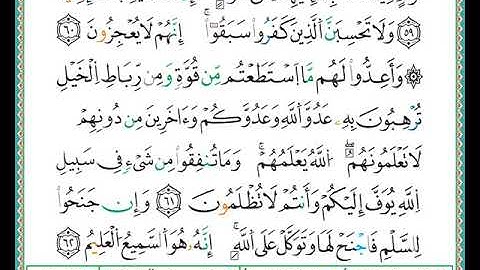 ٥٩ وَلَا تَحْسِبَنَّ ٱلَّذِينَ كَفَرُوا۟ سَبَقُوٓا۟ ۚ إِنَّهُمْ لَا يُعْجِزُونَ ٦٠
۞ وَأَعِدُّوا۟ لَهُم مَّا ٱسْتَطَعْتُم مِّن قُوَّةٍ وَمِن رِّبَاطِ ٱلْخَيْلِ
تُرْهِبُونَ بِهِۦ عَدُوَّ ٱللَّهِ وَعَدُوَّكُمْ وَءَاخَرِينَ مِن دُونِهِمْ
لَا تَعْلَمُونَهُمُ ۖ ٱللَّهُ يَعْلَمُهُمْ ۚ وَمَا تُنفِقُوا۟ مِن شَىْءٍ فِى سَبِيلِ
ٱللَّهِ يُوَفَّ إِلَيْكُمْ وَأَنتُمْ لَا تُظْلَمُونَ ٦١ وَإِن جَنَحُوا۟
لِلسَّلْمِ فَٱجْنَحْ لَهَا وَتَوَكَّلْ عَلَى ٱللَّهِ ۚ إِنَّهُۥ هُوَ ٱلسَّمِيعُ ٱلْعَلِيمُ ٦٢